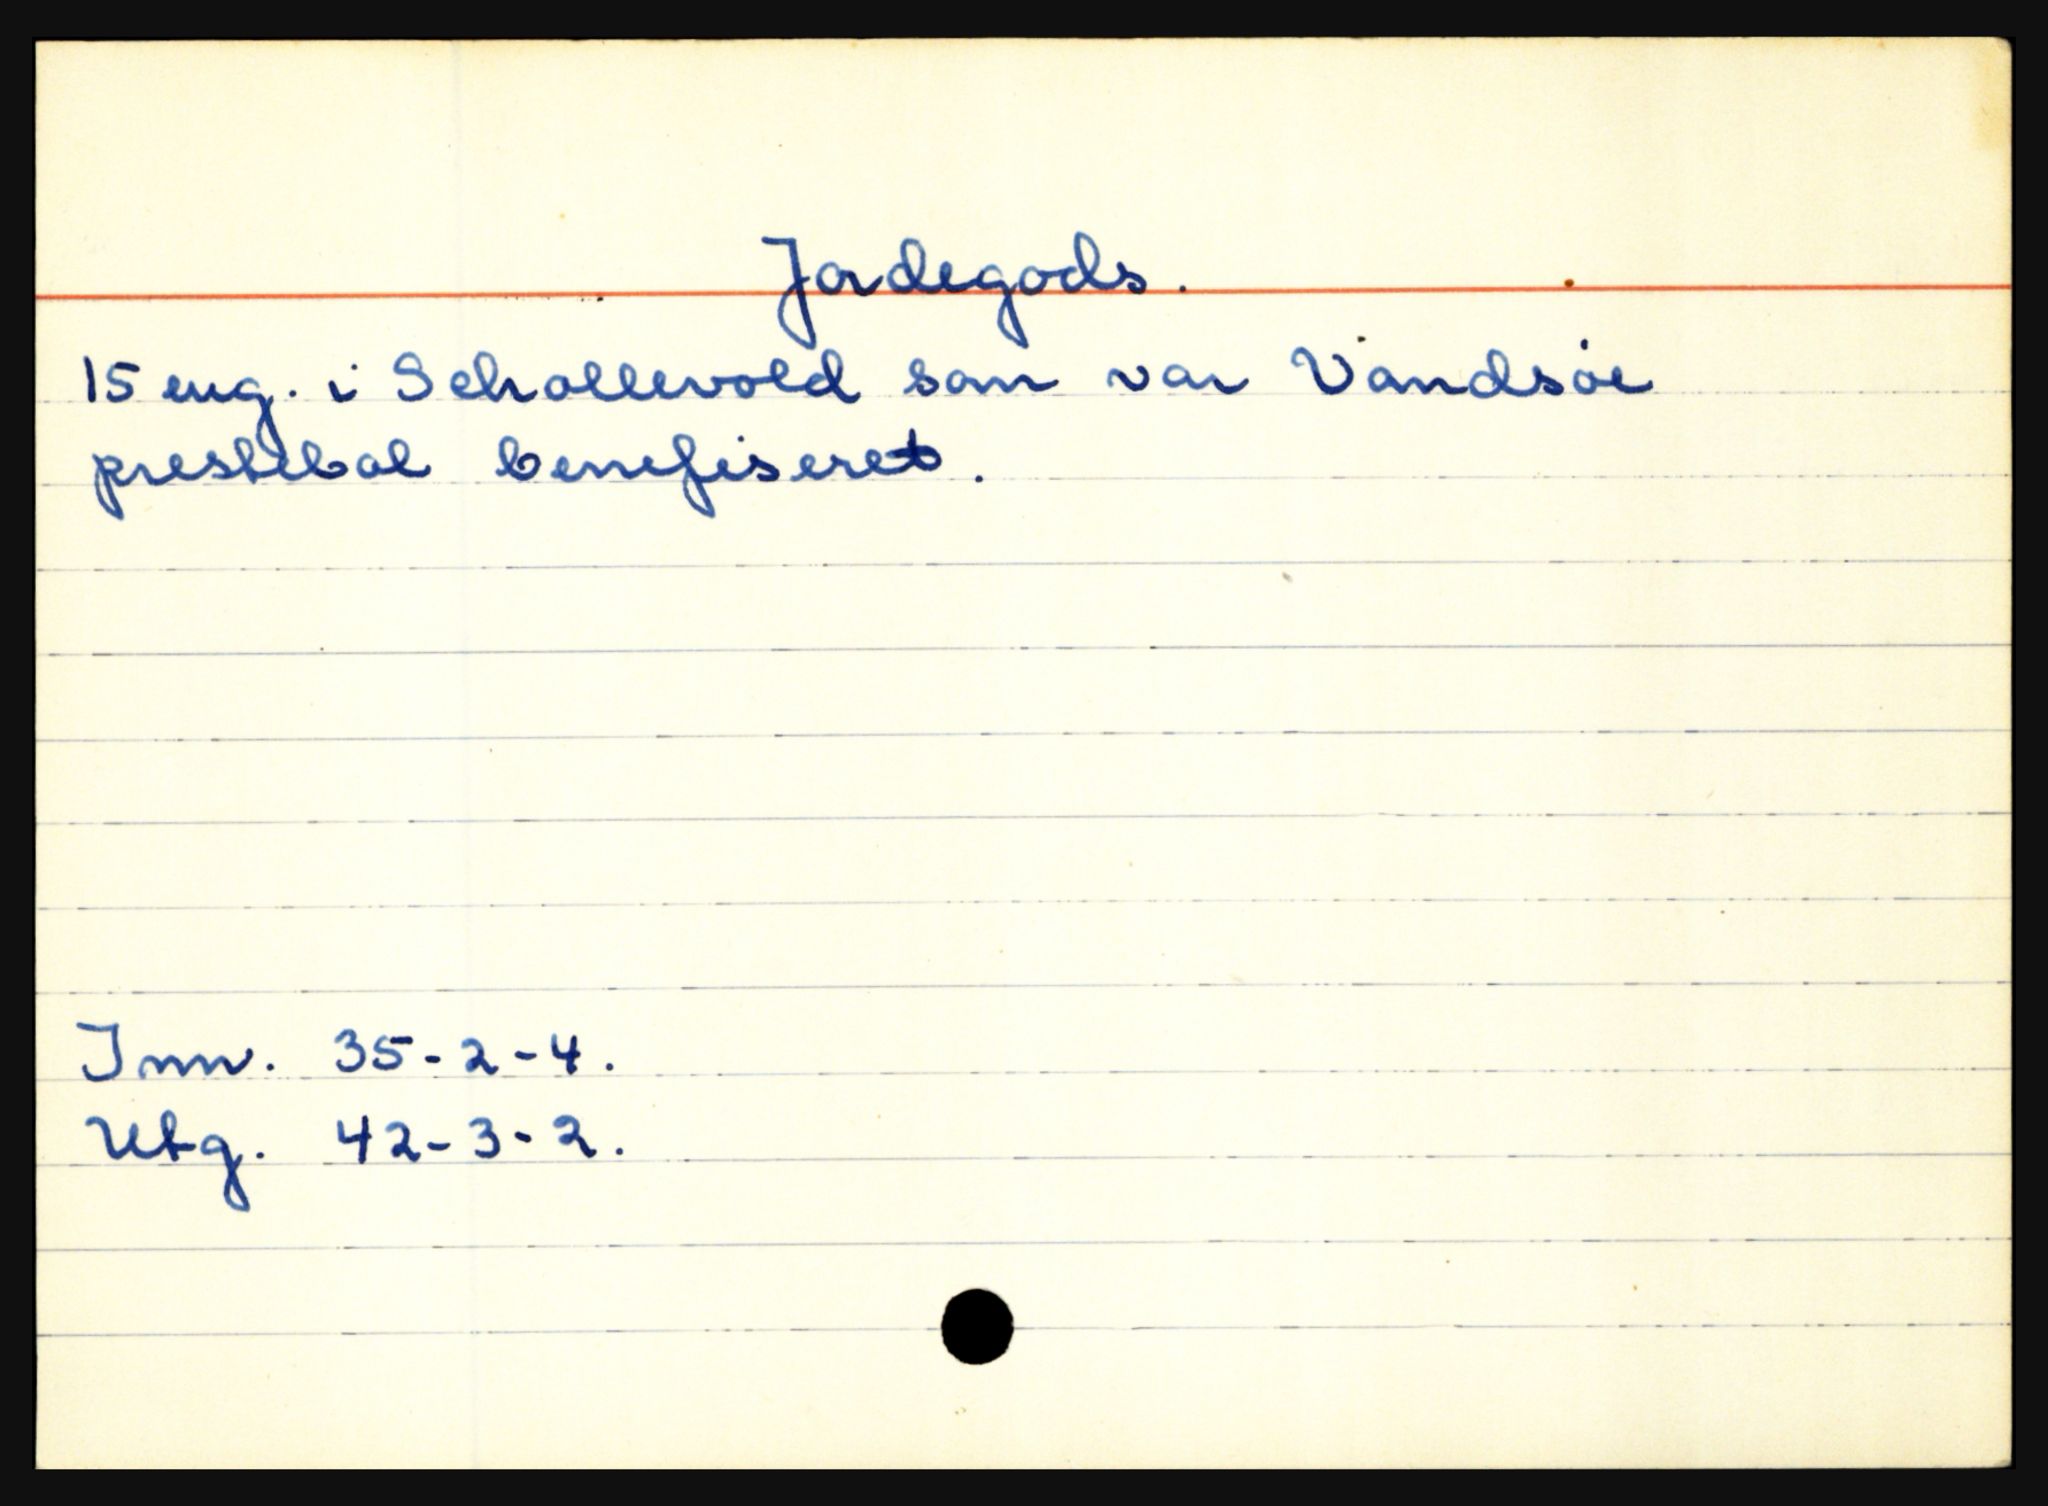 Jordegods.
15 eng. i Schallevold som var Vandsøe
prestebol benefiseret.
Inn. 35-2-4.
Utg. 42-3-2.